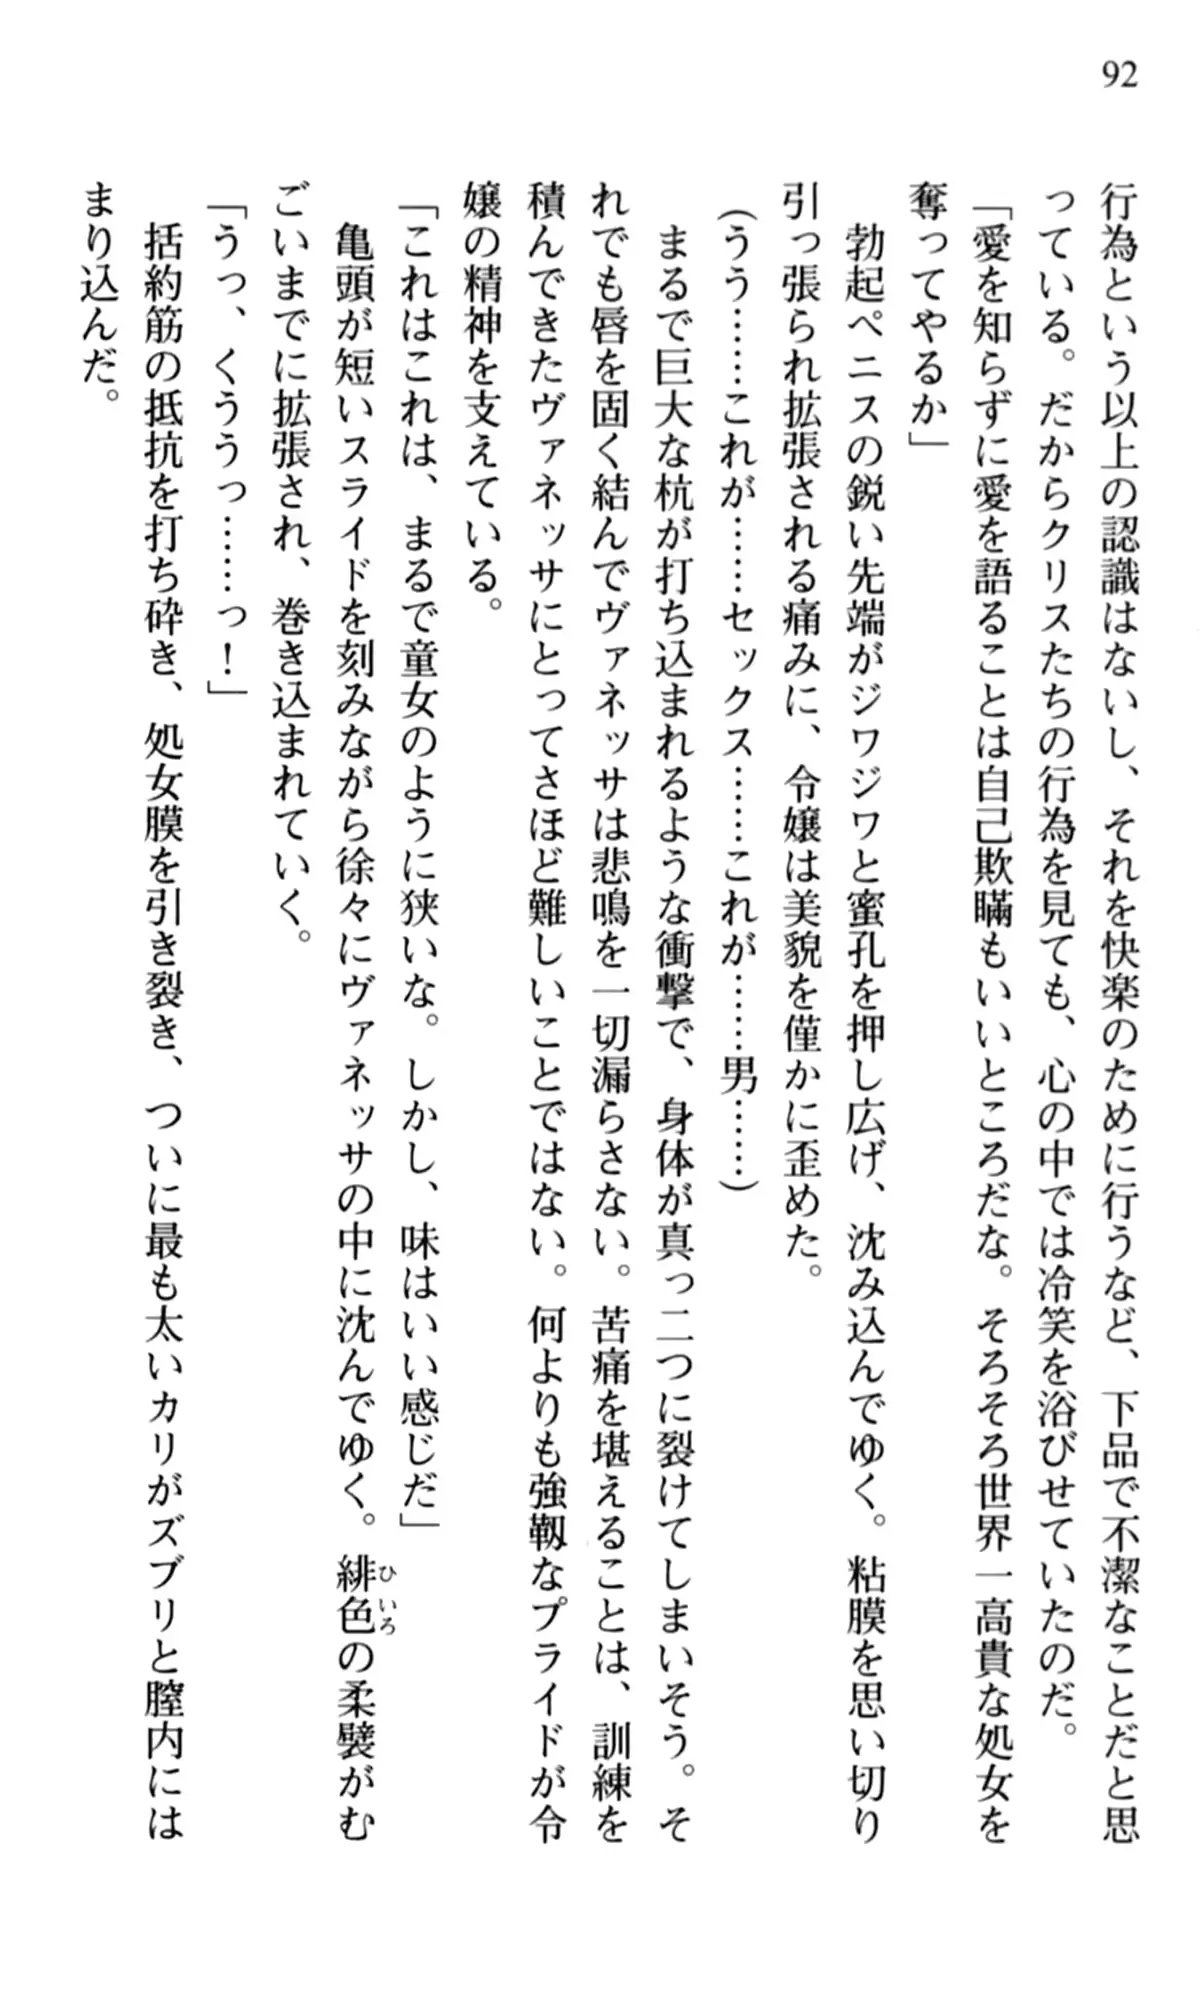 92
行為という以上の認識はないし、それを快楽のために行うなど、下品で不潔なことだと思
っている。だからクリスたちの行為を見ても、心の中では冷笑を浴びせていたのだ。
「愛を知らずに愛を語ることは自己欺瞞もいいところだな。そろそろ世界一高貴な処女を
奪ってやるか」
勃起ペニスの鋭い先端がジワジワと蜜孔を押し広げ、沈み込んでゆく。粘膜を思い切り
引っ張られ拡張される痛みに、令嬢は美貌を僅かに歪めた。
（うう………これが………セックス………これが………男………）
まるで巨大な杭が打ち込まれるような衝撃で、身体が真っ二つに裂けてしまいそう。そ
れでも唇を固く結んでヴァネッサは悲鳴を一切漏らさない。苦痛を堪えることは、訓練を
積んできたヴァネッサにとってさほど難しいことではない。何よりも強靱なプライドが令
嬢の精神を支えている。
「これはこれは、まるで童女のように狭いな。しかし、味はいい感じだ」
亀頭が短いスライドを刻みながら徐々にヴァネッサの中に沈んでゆく。緋色の柔襞がむ
ひいろ
ごいまでに拡張され、巻き込まれていく。
「うっ、くううっ………っ！」
括約筋の抵抗を打ち砕き、処女膜を引き裂き、ついに最も太いカリがズブリと膣内には
まり込んだ。